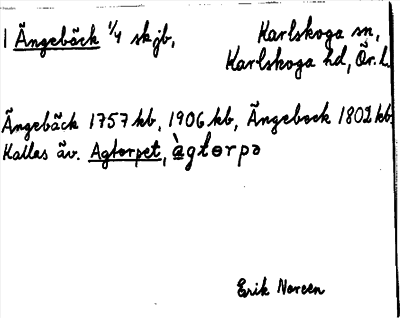 1 Ängebäck 1/4 skjb, Karlskoga sn,
Karlskoga hd, Ör. l.
Ängebäck 1757 kb, 1906 kb, Ängebock 1802 kb.
Kallas äv. Agtorpet, àgtɵrpə
Erik Noreen